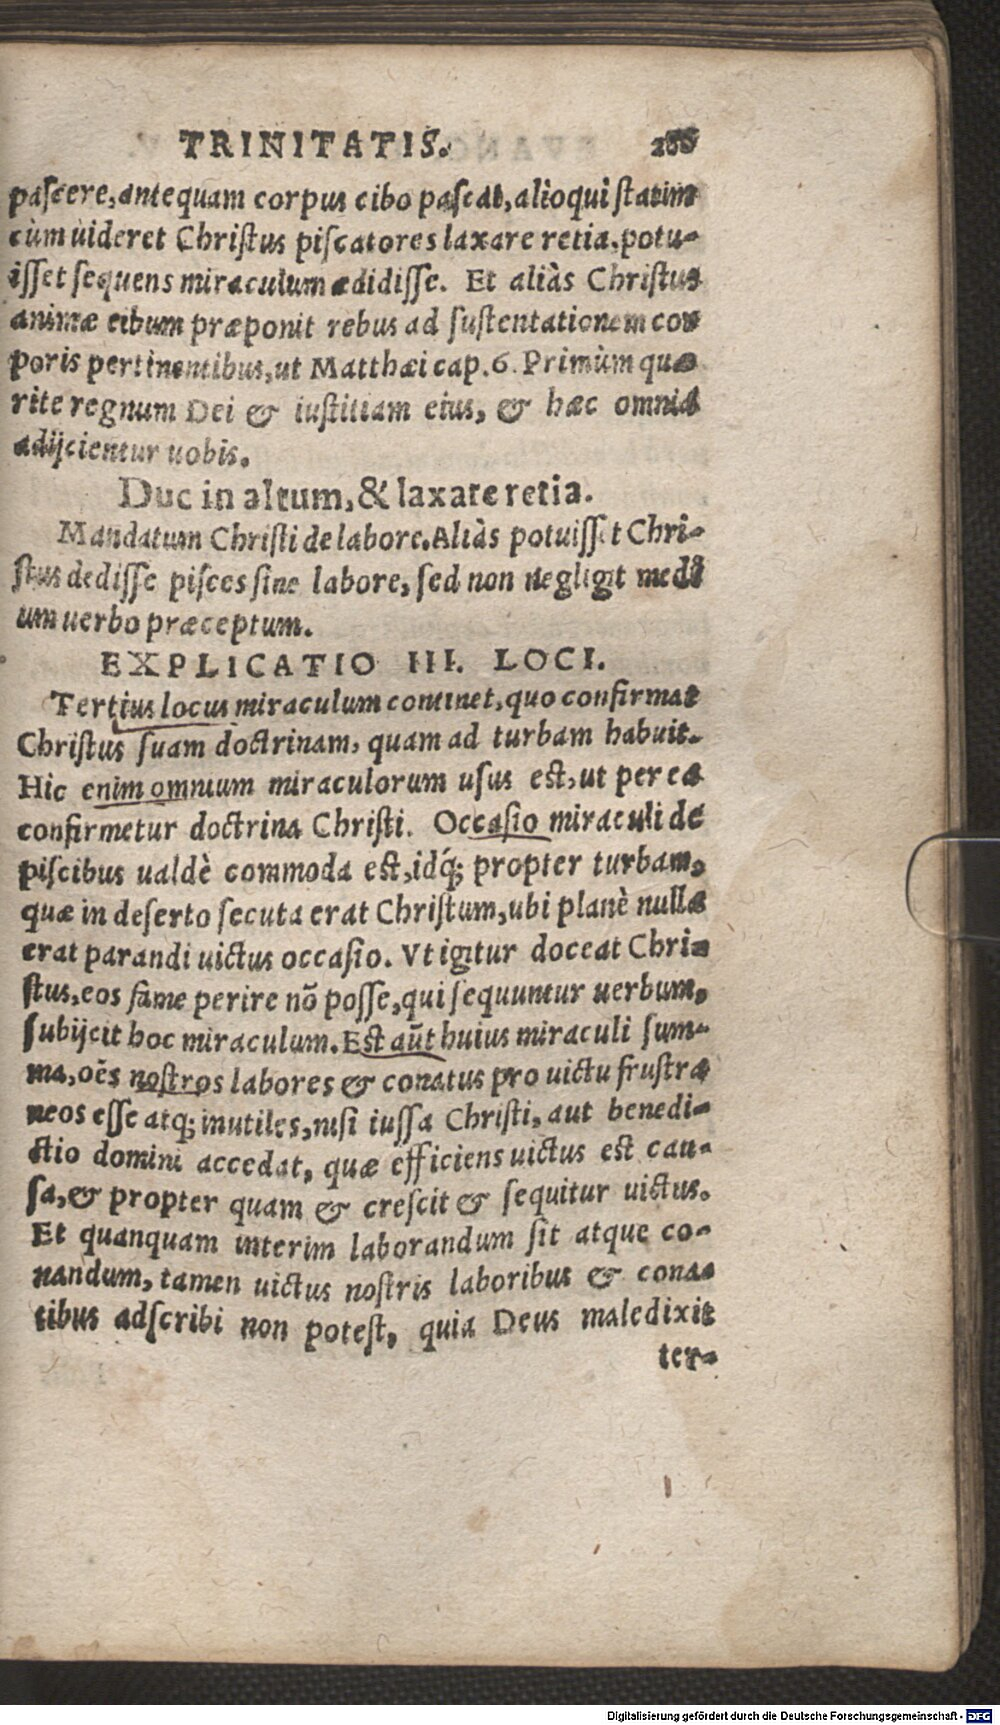 TRINITATIS.
pascere, antequam corpus cibo pascat, alioqui statim
cùm uideret Christus piscatores laxare retia, potu-
isset sequens miraculum ædidisse. Et aliàs Christus
animæ cibum præponit rebus ad sustentationem cor
poris pertinentibus, ut Matthæi cap. 6. Primùm quæ
rite regnum Dei & iustitiam eius, & hæc omnia
adijcientur uobis.
Duc in altum, & laxate retia.
Mandatum Christi de labore. Aliàs potuisset Chri-
stus dedisse pisces sine labore, sed non negligit medi
um uerbo præceptum.
EXPLICATIO III. LOCI.
Tertius locus miraculum continet, quo confirmat
Christus suam doctrinam, quam ad turbam habuit.
Hic enim omnium miraculorum usus est, ut per ea
confirmetur doctrina Christi. Occasio miraculi de
piscibus ualdè commoda est, idq́; propter turbam,
quæ in deserto secuta erat Christum, ubi planè nulla
erat parandi uictus occasio. Vt igitur doceat Chri-
stus, eos fame perire nō posse, qui sequuntur uerbum,
subijcit hoc miraculum. Est aūt huius miraculi sum-
ma, oēs nostros labores & conatus pro uictu frustra
neos esse atq; inutiles, nisi iussa Christi, aut benedi-
ctio domini accedat, quæ efficiens uictus est cau-
sa, & propter quam & crescit & sequitur uictus.
Et quanquam interim laborandum sit atque co-
nandum, tamen uictus nostris laboribus & cona-
tibus adscribi non potest, quia Deus maledixit
ter-
Digitalisierung gefördert durch die Deutsche Forschungsgemeinschaft - DFG